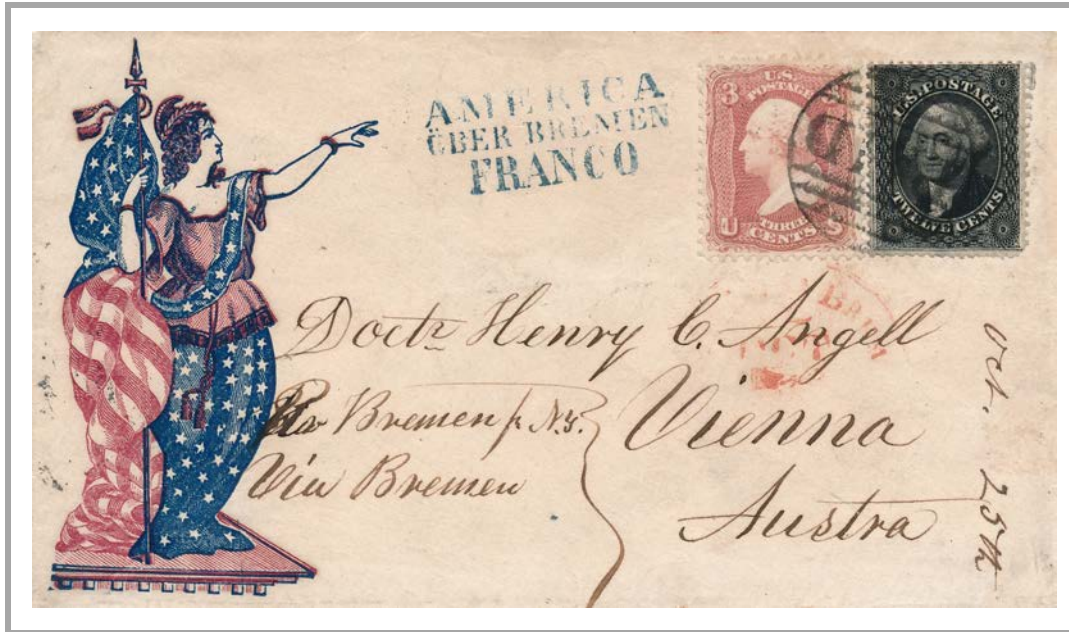 AMERICA
ÜBER BREMEN
FRANCO
U.S.
POSTAGE
3
THREE
CENTS
U.S. POSTAGE
TWELVE CENTS
Doctr Henry C. Angell
Bremen / N.Y.
Via Bremen
Vienna
Austra
Oct. 25th